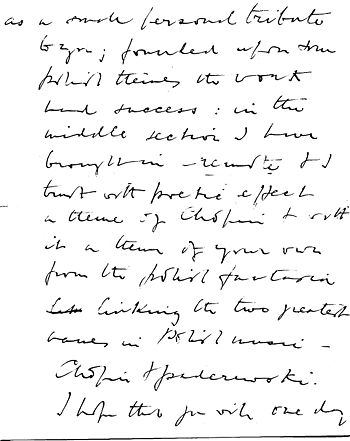 as a small personal tribute
to you; founded upon some
polish themes the work
had success: in the
middle section I have
brought in - remote & I
trust with poetic effect
a theme of Chopin & with
it a theme of your own
from the polish fantasia
linking the two greatest
names in Polish music -
Chopin & paderewski.
I hope that you will one day